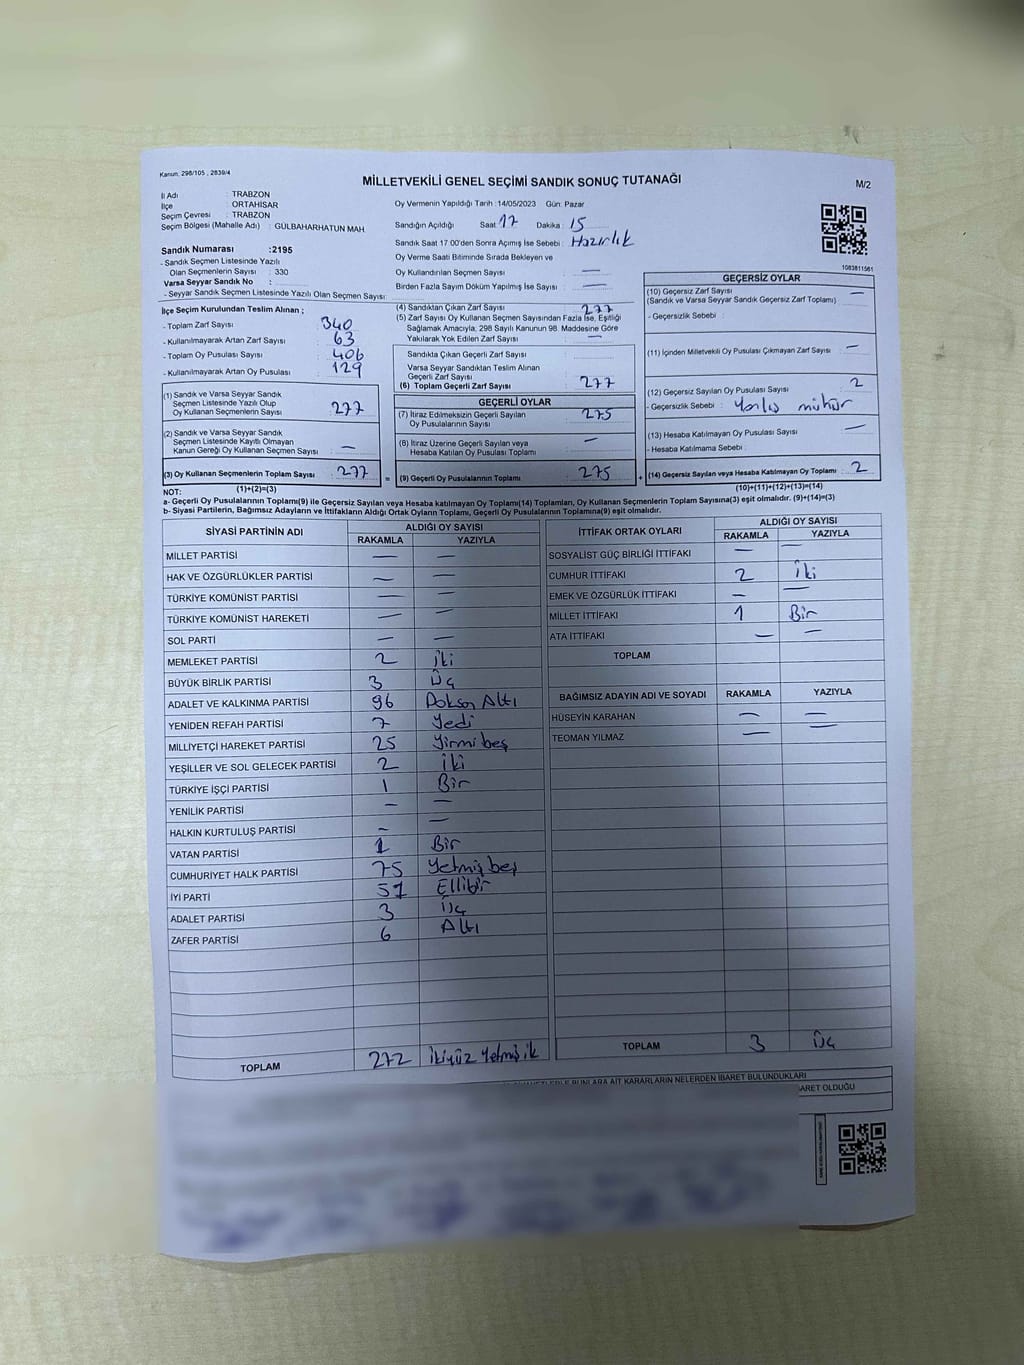 Kanun, 298/105 , 2839/4
MİLLETVEKİLİ GENEL SEÇİMİ SANDIK SONUÇ TUTANAĞI
M/2
İl Adı : TRABZON
İlçe : ORTAHİSAR
Seçim Çevresi : TRABZON
Seçim Bölgesi (Mahalle Adı) : GÜLBAHARHATUN MAH.
Sandık Numarası :2195
- Sandık Seçmen Listesinde Yazılı
Olan Seçmenlerin Sayısı : 330
Varsa Seyyar Sandık No :
- Seyyar Sandık Seçmen Listesinde Yazılı Olan Seçmen Sayısı:
Oy Vermenin Yapıldığı Tarih :14/05/2023 Gün: Pazar
Sandığın Açıldığı Saat 17 Dakika : 15
Sandık Saat 17.00'den Sonra Açımış İse Sebebi : Hazırlık
Oy Verme Saati Bitiminde Sırada Bekleyen ve
Oy Kullandırılan Seçmen Sayısı : —
Birden Fazla Sayım Döküm Yapılmış İse Sayısı : —
1083811561
İlçe Seçim Kurulundan Teslim Alınan ;
- Toplam Zarf Sayısı : 340
- Kullanılmayarak Artan Zarf Sayısı : 63
- Toplam Oy Pusulası Sayısı : 406
- Kullanılmayarak Artan Oy Pusulası : 129
(1) Sandık ve Varsa Seyyar Sandık
Seçmen Listesinde Yazılı Olup
Oy Kullanan Seçmenlerin Sayısı : 277
(2) Sandık ve Varsa Seyyar Sandık
Seçmen Listesinde Kayıtlı Olmayan
Kanun Gereği Oy Kullanan Seçmen Sayısı : —
(3) Oy Kullanan Seçmenlerin Toplam Sayısı : 277
(1)+(2)=(3)
(4) Sandıktan Çıkan Zarf Sayısı : 277
(5) Zarf Sayısı Oy Kullanan Seçmen Sayısından Fazla İse, Eşitliği
Sağlamak Amacıyla, 298 Sayılı Kanunun 98. Maddesine Göre
Yakılarak Yok Edilen Zarf Sayısı : —
Sandıkta Çıkan Geçerli Zarf Sayısı :
Varsa Seyyar Sandıktan Teslim Alınan
Geçerli Zarf Sayısı :
(6) Toplam Geçerli Zarf Sayısı : 277
GEÇERLİ OYLAR
(7) İtiraz Edilmeksizin Geçerli Sayılan
Oy Pusulalarının Sayısı : 275
(8) İtiraz Üzerine Geçerli Sayılan veya
Hesaba Katılan Oy Pusulası Toplamı : —
= (9) Geçerli Oy Pusulalarının Toplamı : 275
GEÇERSİZ OYLAR
(10) Geçersiz Zarf Sayısı : —
(Sandık ve Varsa Seyyar Sandık Geçersiz Zarf Toplamı)
- Geçersizlik Sebebi :
(11) İçinden Milletvekili Oy Pusulası Çıkmayan Zarf Sayısı : —
(12) Geçersiz Sayılan Oy Pusulası Sayısı : 2
- Geçersizlik Sebebi : Yanlış mühür
(13) Hesaba Katılmayan Oy Pusulası Sayısı : —
- Hesaba Katılmama Sebebi :
+ (14) Geçersiz Sayılan veya Hesaba Katılmayan Oy Toplamı : 2
(10)+(11)+(12)+(13)=(14)
NOT:
a- Geçerli Oy Pusulalarının Toplamı(9) ile Geçersiz Sayılan veya Hesaba katılmayan Oy Toplamı(14) Toplamları, Oy Kullanan Seçmenlerin Toplam Sayısına(3) eşit olmalıdır. (9)+(14)=(3)
b- Siyasi Partilerin, Bağımsız Adayların ve İttifakların Aldığı Ortak Oyların Toplamı, Geçerli Oy Pusulalarının Toplamına(9) eşit olmalıdır.
SİYASİ PARTİNİN ADI ALDIĞI OY SAYISI
RAKAMLA YAZIYLA
MİLLET PARTİSİ — —
HAK VE ÖZGÜRLÜKLER PARTİSİ — —
TÜRKİYE KOMÜNİST PARTİSİ — —
TÜRKİYE KOMÜNİST HAREKETİ — —
SOL PARTİ — —
MEMLEKET PARTİSİ 2 İki
BÜYÜK BİRLİK PARTİSİ 3 Üç
ADALET VE KALKINMA PARTİSİ 96 Doksan Altı
YENİDEN REFAH PARTİSİ 7 Yedi
MİLLİYETÇİ HAREKET PARTİSİ 25 Yirmi beş
YEŞİLLER VE SOL GELECEK PARTİSİ 2 İki
TÜRKİYE İŞÇİ PARTİSİ 1 Bir
YENİLİK PARTİSİ — —
HALKIN KURTULUŞ PARTİSİ — —
VATAN PARTİSİ 1 Bir
CUMHURİYET HALK PARTİSİ 75 Yetmiş beş
İYİ PARTİ 51 Ellibir
ADALET PARTİSİ 3 Üç
ZAFER PARTİSİ 6 Altı
TOPLAM 272 İkiyüz Yetmiş ik
İTTİFAK ORTAK OYLARI ALDIĞI OY SAYISI
RAKAMLA YAZIYLA
SOSYALİST GÜÇ BİRLİĞİ İTTİFAKI — —
CUMHUR İTTİFAKI 2 İki
EMEK VE ÖZGÜRLÜK İTTİFAKI — —
MİLLET İTTİFAKI 1 Bir
ATA İTTİFAKI — —
TOPLAM
BAĞIMSIZ ADAYIN ADI VE SOYADI RAKAMLA YAZIYLA
HÜSEYİN KARAHAN — —
TEOMAN YILMAZ — —
TOPLAM 3 Üç
BUNLARA AİT KARARLARIN NELERDEN İBARET BULUNDUKLARI
OLDUĞU